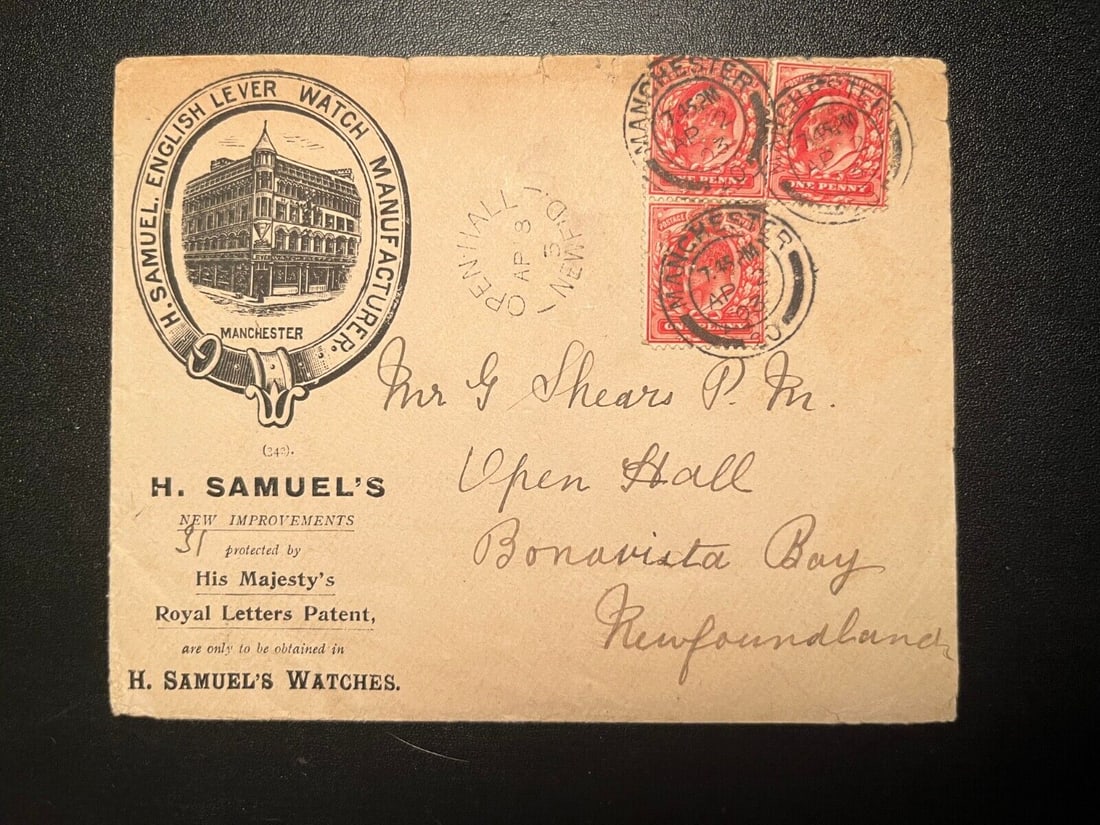 H. SAMUEL. ENGLISH LEVER WATCH MANUFACTURER.
MANCHESTER
(342).
H. SAMUEL'S
NEW IMPROVEMENTS
31
protected by
His Majesty's
Royal Letters Patent,
are only to be obtained in
H. SAMUEL'S WATCHES.
OPENHALL
AP 8
NEWF'D
MANCHESTER
7.45 PM
AP
ONE PENNY
MANCHESTER
AP
ONE PENNY
POSTAGE
MANCHESTER
7.45 PM
AP
ONE PENNY
Mr G Shears P. M.
Open Hall
Bonavista Bay
Newfoundland